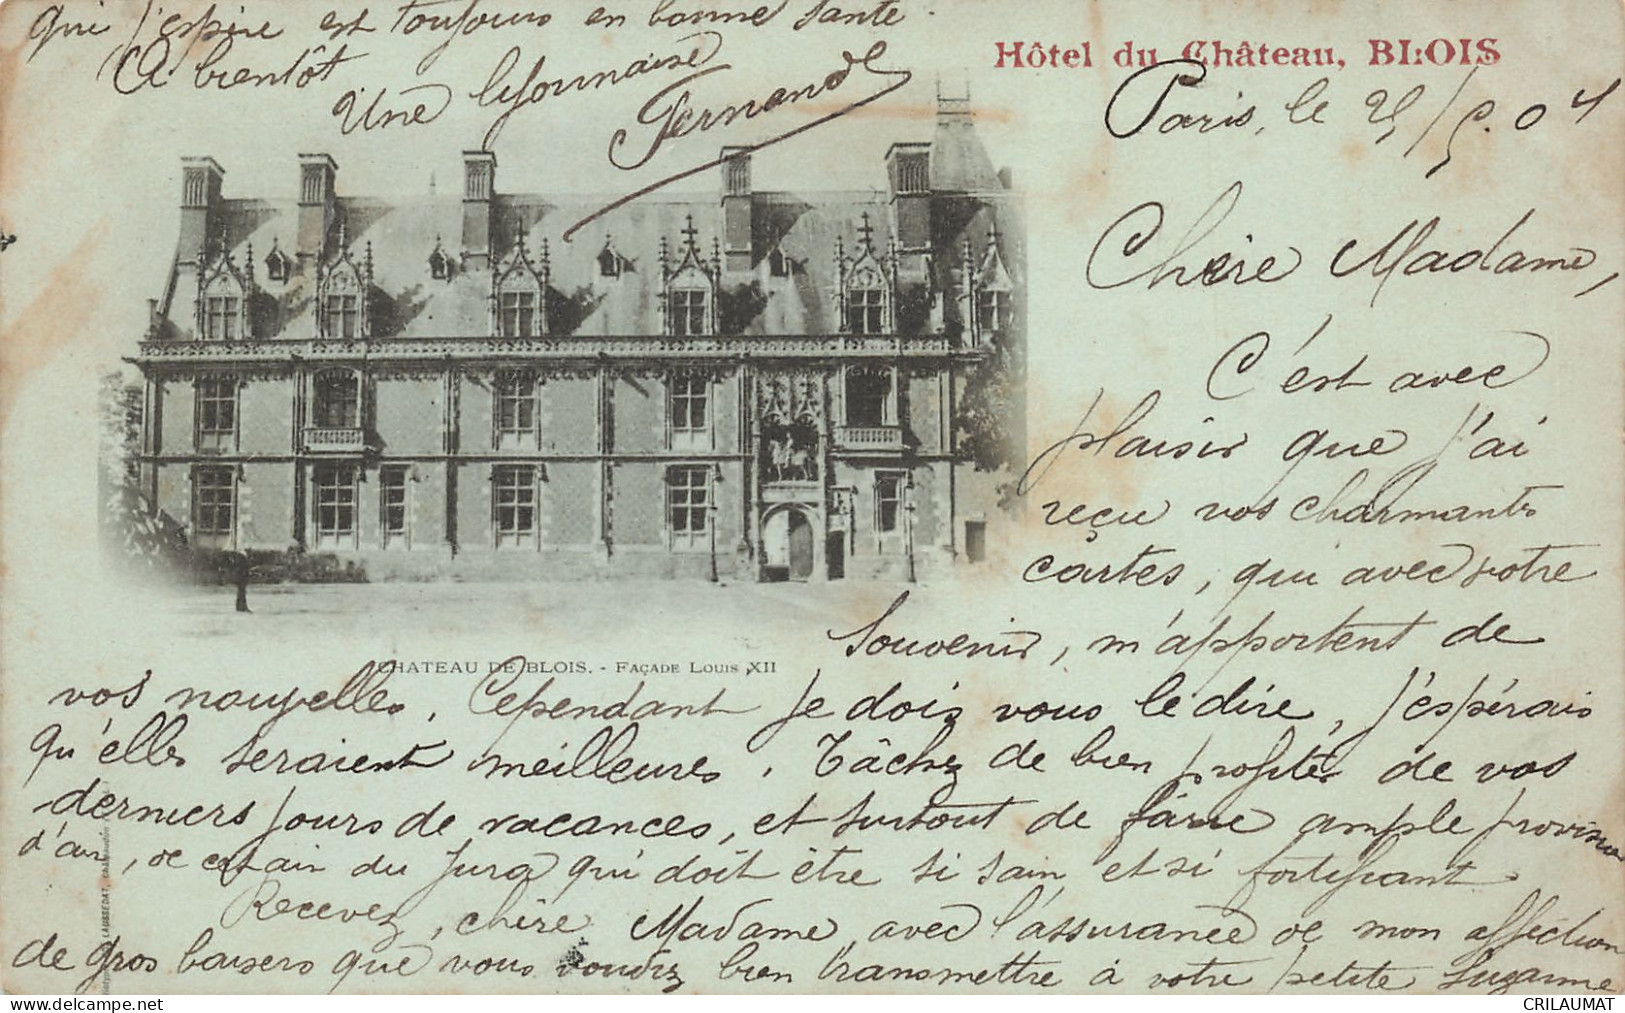 Hôtel du Château, BLOIS
Paris, le 25/9.04
Chère Madame,
C'est avec
plaisir que j'ai
reçu vos charmantes
cartes, qui avec votre
souvenir, m'apportent de
vos nouvelles. Cependant je dois vous le dire, j'espérais
qu'elles seraient meilleures. Tâchez de bien profiter de vos
derniers jours de vacances, et surtout de faire ample provision
d'air, de cet air du Jura qui doit être si sain et si fortifiant.
Recevez, chère Madame, avec l'assurance de mon affection
de gros baisers que vous voudrez bien transmettre à votre petite Suzanne
qui j'espère est toujours en bonne santé.
A bientôt
Une lyonnaise
Fernande
CHATEAU DE BLOIS. - FAÇADE LOUIS XII
LAUSSEDAT,
CRILAUMAT